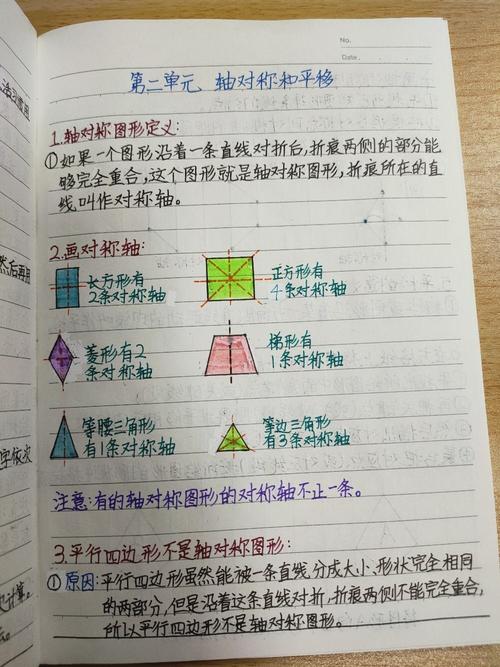 No.
Date.
第二单元 轴对称和平移
1.轴对称图形定义:
①如果一个图形沿着一条直线对折后,折痕两侧的部分能
够完全重合,这个图形就是轴对称图形,折痕所在的直
线叫作对称轴。
2.画对称轴:
长方形有
2条对称轴
正方形有
4条对称轴
菱形有2
条对称轴
梯形有
1条对称轴
等腰三角形
有1条对称轴
等边三角形
有3条对称轴
注意:有的轴对称图形的对称轴不止一条。
3.平行四边形不是轴对称图形:
①原因:平行四边形虽然能被一条直线分成大小、形状完全相同
的两部分,但是沿着这条直线对折,折痕两侧不能完全重合,
所以平行四边形不是轴对称图形。
然后再用
字依次
计算。